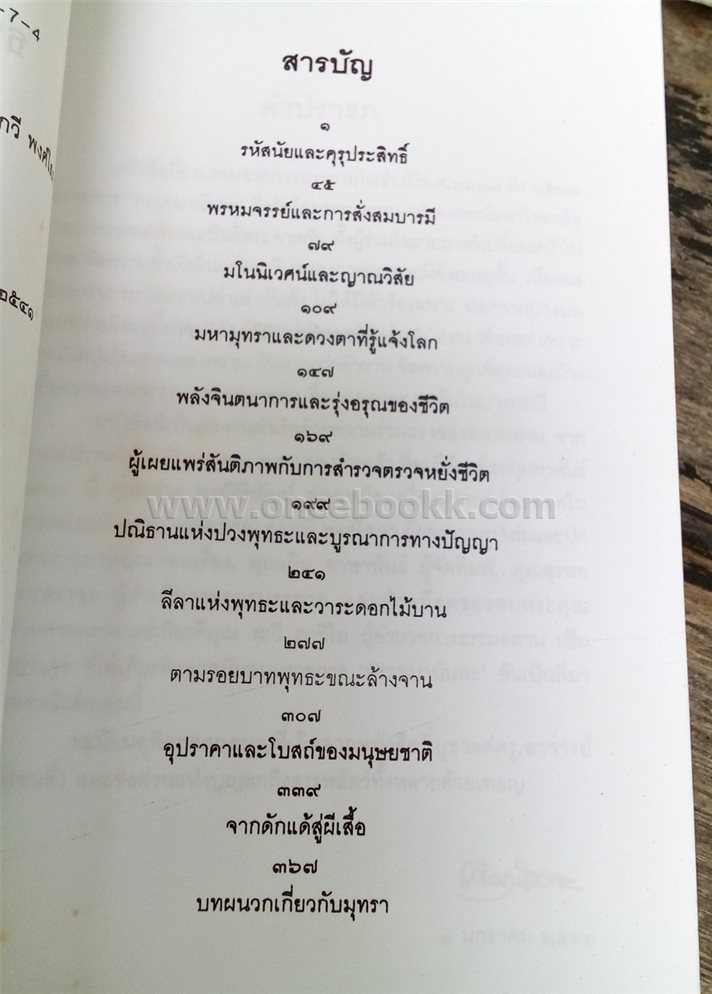 -7-4
กวี
๒๕๔๑
สารบัญ
๑
รหัสนัยและคุรุประสิทธิ์
๔๕
พรหมจรรย์และการสั่งสมบารมี
๗๙
มโนนิเวศน์และญาณวิสัย
๑๐๙
มหามุทราและดวงตาที่รู้แจ้งโลก
๑๔๗
พลังจินตนาการและรุ่งอรุณของชีวิต
๑๖๙
ผู้เผยแพร่สันติภาพกับการสำรวจตรวจหยั่งชีวิต
www.oncebookk.com
๑๙๙
ปณิธานแห่งปวงพุทธะและบูรณาการทางปัญญา
๒๔๑
ลีลาแห่งพุทธะและวาระดอกไม้บาน
๒๗๗
ตามรอยบาทพุทธะขณะล้างจาน
๓๐๗
อุปราคาและโบสถ์ของมนุษยชาติ
๓๓๙
จากดักแด้สู่ผีเสื้อ
๓๖๗
บทผนวกเกี่ยวกับมุทรา